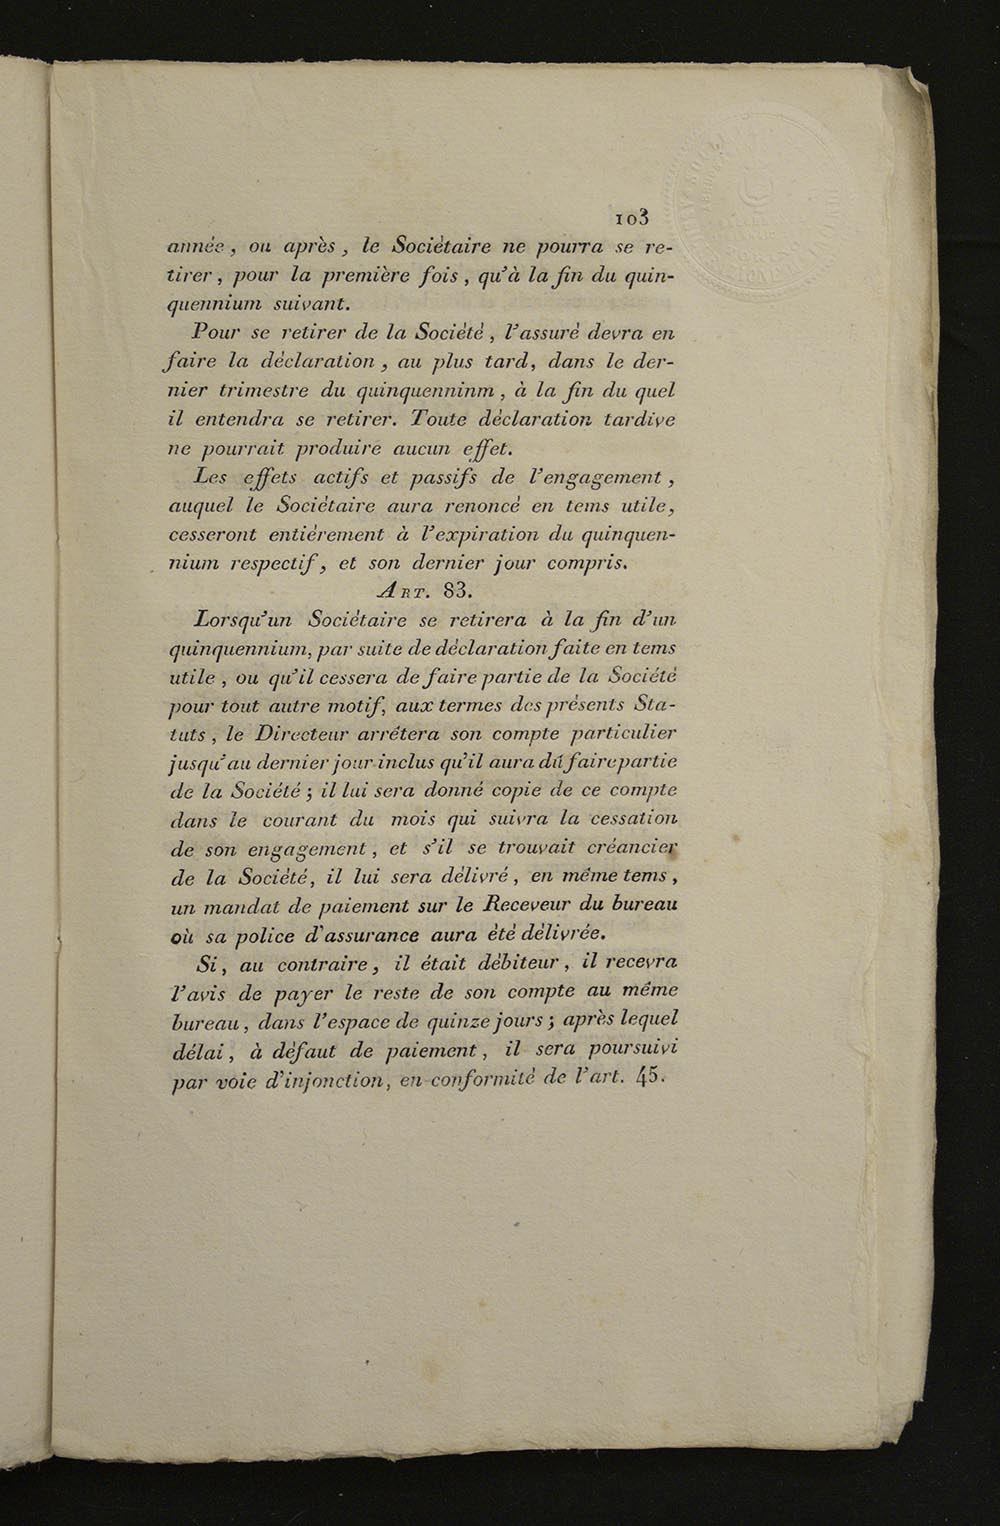 103
année, ou après, le Sociétaire ne pourra se re-
tirer, pour la première fois, qu'à la fin du quin-
quennium suivant.
Pour se retirer de la Société, l'assuré devra en
faire la déclaration, au plus tard, dans le der-
nier trimestre du quinquenninm, à la fin du quel
il entendra se retirer. Toute déclaration tardive
ne pourrait produire aucun effet.
Les effets actifs et passifs de l'engagement,
auquel le Sociétaire aura renoncé en tems utile,
cesseront entièrement à l'expiration du quinquen-
nium respectif, et son dernier jour compris.
ART. 83.
Lorsqu'un Sociétaire se retirera à la fin d'un
quinquennium, par suite de déclaration faite en tems
utile, ou qu'il cessera de faire partie de la Société
pour tout autre motif, aux termes des présents Sta-
tuts, le Directeur arrêtera son compte particulier
jusqu'au dernier jour inclus qu'il aura dû faire partie
de la Société; il lui sera donné copie de ce compte
dans le courant du mois qui suivra la cessation
de son engagement, et s'il se trouvait créancier
de la Société, il lui sera délivré, en même tems,
un mandat de paiement sur le Receveur du bureau
où sa police d'assurance aura été délivrée.
Si, au contraire, il était débiteur, il recevra
l'avis de payer le reste de son compte au même
bureau, dans l'espace de quinze jours; après lequel
délai, à défaut de paiement, il sera poursuivi
par voie d'injonction, en conformité de l'art. 45.